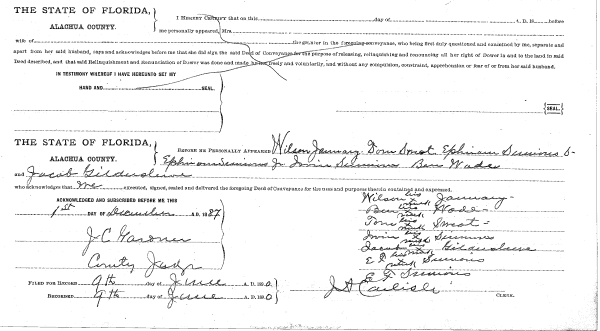 THE STATE OF FLORIDA,
ALACHUA COUNTY.
I HEREBY CERTIFY that on this day of A. D. 18 before
me personally appeared, Mrs.
wife of the grantor in the foregoing conveyance, who being first duly questioned and examined by me, separate and
apart from her said husband, says and acknowledges before me that she did sign the said Deed of Conveyance for the purpose of releasing, relinquishing and renouncing all her right of Dower in and to the land in said
Deed described, and that said Relinquishment and Renunciation of Dower was done and made by her freely and voluntarily, and without any compulsion, constraint, apprehension or fear of or from her said husband.
IN TESTIMONY WHEREOF I HAVE HEREUNTO SET MY
HAND AND SEAL.
{SEAL.}
THE STATE OF FLORIDA,
ALACHUA COUNTY.
BEFORE ME PERSONALLY APPEARED Wilson January Tom Smot Ephriam Simmons Sr
Ephriam Simmons Jr Irvin Simmons Ben Wade
and Jacob Gildersleive
who acknowledges that we executed, signed, sealed and delivered the foregoing Deed of Conveyance for the uses and purposes therein contained and expressed.
ACKNOWLEDGED AND SUBSCRIBED BEFORE ME THIS
1st DAY OF December A. D. 1887
J. C. Gardner
County Judge
Wilson his x mark January
Ben his x mark Wade
Tom his x mark Smot
Irvin his x mark Simmons
Jacob his x mark Gildersleive
E his x mark Simmons
E Simmons
FILED FOR RECORD 9th day of June A. D. 1890
RECORDED 9th day of June 1890
J A Carlisle CLERK.